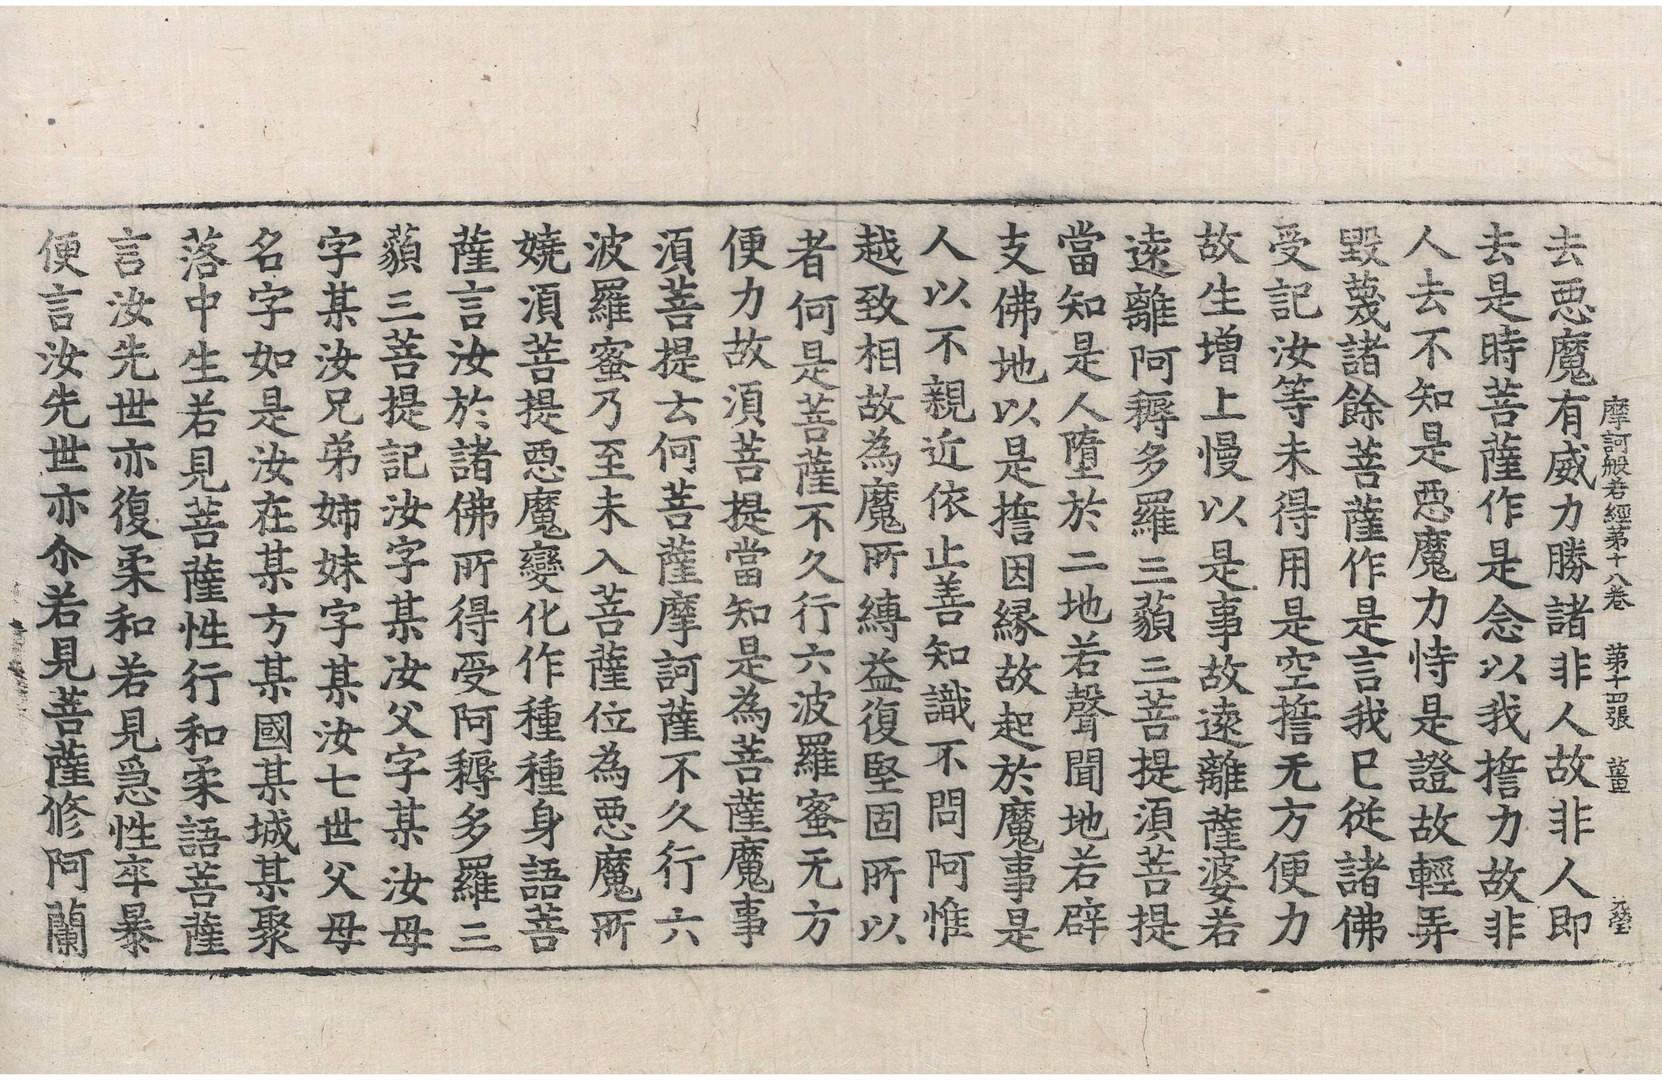 摩訶般若經第十八卷　第十四張　薑　元瑩
去惡魔有威力勝諸非人故非人即
去是時菩薩作是念以我擔力故非
人去不知是惡魔力恃是證故輕弄
毀蔑諸餘菩薩作是言我已從諸佛
受記汝等未得用是空誓无方便力
故生增上慢以是事故遠離薩婆若
遠離阿耨多羅三藐三菩提須菩提
當知是人墮於二地若聲聞地若辟
支佛地以是擔因緣故起於魔事是
人以不親近依止善知識不問阿惟
越致相故為魔所縛益復堅固所以
者何是菩薩不久行六波羅蜜无方
便力故須菩提當知是為菩薩魔事
須菩提云何菩薩摩訶薩不久行六
波羅蜜乃至未入菩薩位為惡魔所
嬈須菩提惡魔變化作種種身語菩
薩言汝於諸佛所得受阿耨多羅三
藐三菩提記汝字某汝父字某汝母
字某汝兄弟姉妹字某汝七世父母
名字如是汝在某方某國某城某聚
落中生若見菩薩性行和柔語菩薩
言汝先世亦復柔和若見急性卒暴
便言汝先世亦尒若見菩薩修阿蘭